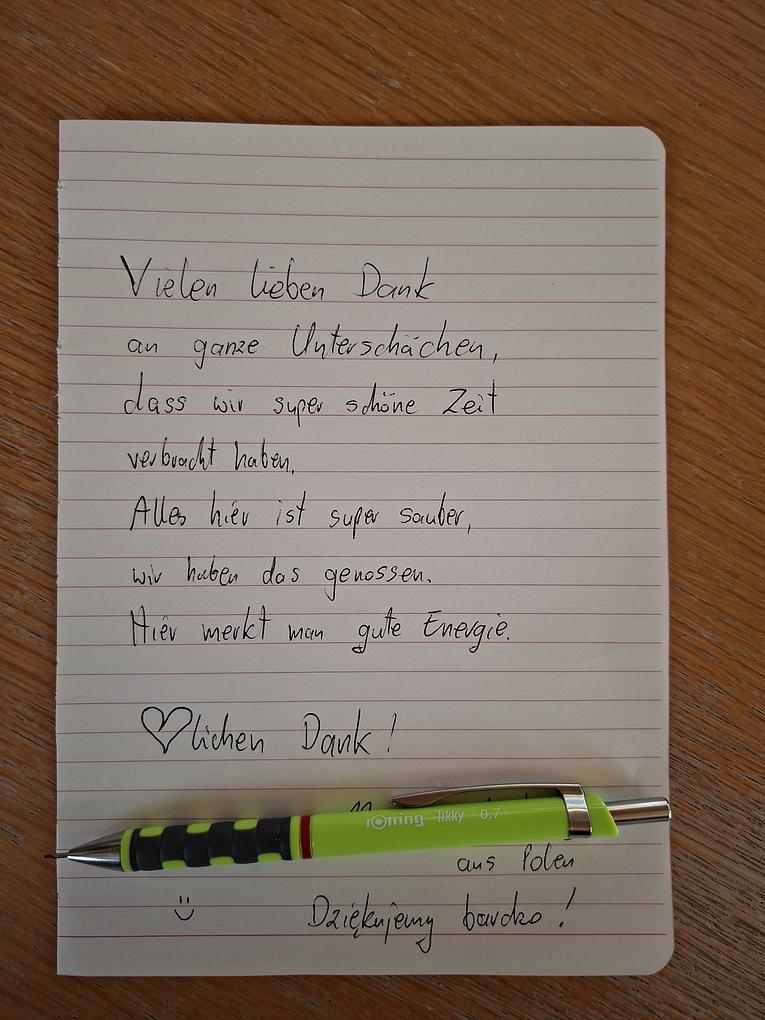 Vielen lieben Dank
an ganze Unterschächen,
dass wir super schöne Zeit
verbracht haben.
Alles hier ist super sauber,
wir haben das genossen.
Hier merkt man gute Energie.
♡lichen Dank!
rotring Tikky 0.7
aus Polen
Dziękujemy bardzo!